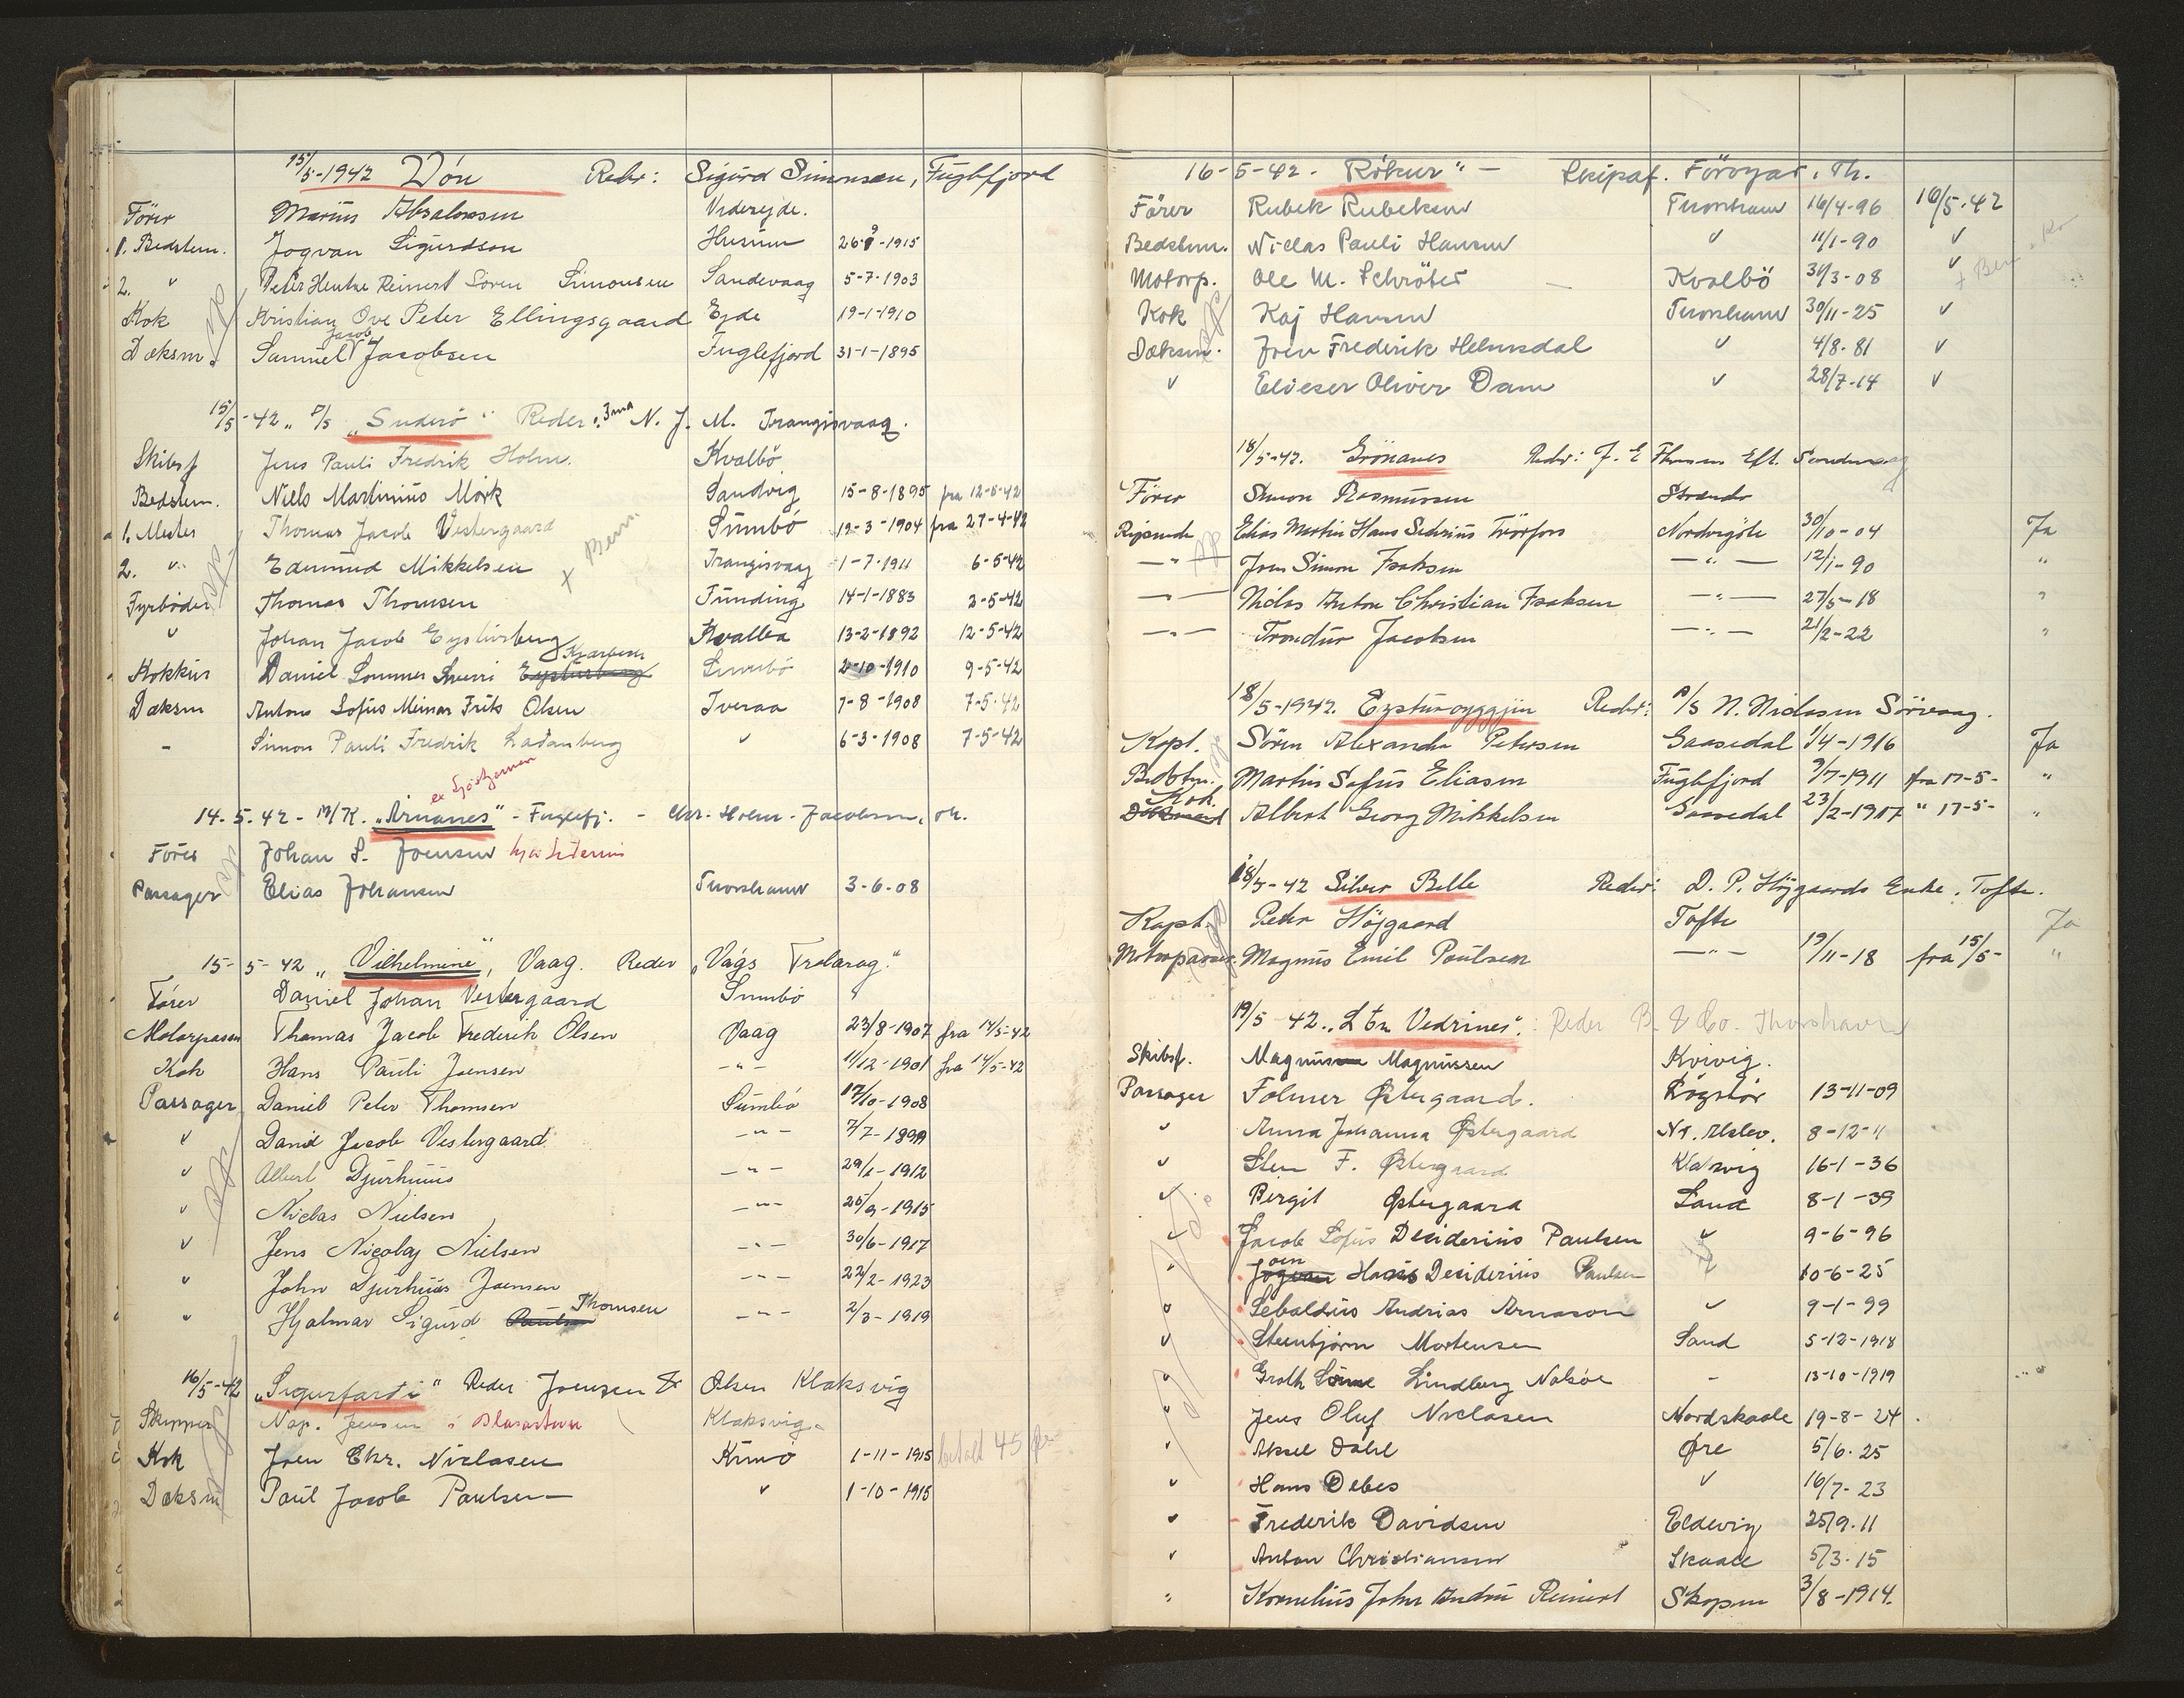 15/5-1942 Vón Reder: Sigurd Simonsen, Fuglefjord
Förer Marius Absalonsen Viderejde.
1. Bedstem. Jogvan Sigurdson Husum 26-9-1915
2. " Peter Hentze Reinert Sören Simonsen Sandevaag 5-7-1903
Kok Kristian Ove Peter Ellingsgaard Ejde 19-1-1910
Dæksm. Samuel Jacob Jacobsen Fuglefjord 31-1-1895
15/5-42 " S/S "Suderö" Reder: N. J. M. Trangisvaag.
Skibsf Jens Pauli Fredrik Holm. Kvalbö
Bedstem. Niels Martinius Mörk Sandvig 15-8-1895 fra 12-5-42
1. Mester Thomas Jacob Vestergaard Sumbö 12-3-1904 fra 27-4-42
2. " Edmund Mikkelsen Trangisvaag 1-7-1911 6-5-42
x Bem.
Fyrböder Thomas Thomsen Funding 14-1-1883 2-5-42
" Johan Jacob Eysturberg Kvalbø 13-2-1892 12-5-42
Kokkur Daniel Sommer Sverri Kjærbech Sumbö 2-10-1910 9-5-42
Dæksm Anton Sofus Meinar Frits Olsen Tveraa 7-8-1908 7-5-42
- Simon Pauli Fredrik Ladanberg " 6-3-1908 7-5-42
14.5.42 - M/K. "Arnanes" - Fuglefj. - Chr. Holm-Jacobsen, Th.
Förer Johan S. Joensen
Passager Elias Johansen Thorshavn 3-6-08
15-5-42 "Vilhelmine", Vaag. Reder "Vágs Trolarag."
Förer Daniel Johan Vestergaard Sumbö
Motorpasser Thomas Jacob Frederik Olsen Vaag 23/8-1907 fra 14/5-42
Kok Hans Pauli Joensen -"- 11/12-1901 fra 14/5-42
Passager Daniel Peter Thomsen Sumbö 17/10-1908
" David Jacob Vestergaard -"- 7/7-1899
" Albert Djurhuus -"- 29/1-1912
" Niclas Nielsen -"- 25/9-1915
" Jens Nicolaj Nielsen -"- 30/6-1917
" John Djurhuus Joensen -"- 22/2-1923
" Hjalmar Sigurd Thomsen -"- 2/3-1919
16/5-42 "Sigurfarii" Reder Joensen & Olsen Klaksvig
Skipper Nap. Joensen Klaksvig.
Kok Joen Chr. Niclasen Kunö 1-11-1915 betalt 45 øre
Dæksm Paul Jacob Poulsen " 1-10-1915
16-5-42. "Rókur" - Skipaf. Föroyar, Th.
Förer Rubek Rubeksen Thorshavn 16/4-96 16/5-42
Bedstem. Niclas Pauli Hansen " 11/1-90 "
Motorp. Ole M. Schröter Kvalbö 31/3-08 "
Kok Kaj Hansen Thorshavn 30/11-25 "
Dæksm. Joen Frederik Helmsdal " 4/8-81 "
" Elieser Oliver Dam " 28/7-14 "
18/5-42. Grönanes Reder: J. E Thomsen Eft. Sandevaag
Förer Simon Rasmussen Strendr
Rejsende Elias Martin Hans Sedrius Trörfoss Nordregöte 30/10-04 Ja
-"- Joen Simon Isaksen -"- 12/1-90 "
-"- Niclas Anton Christian Isaksen -"- 27/5-18 "
-"- Trondur Jacobsen -"- 21/2-22 "
18/5-1942. Eysturoyggjin Reder: P/S N. Niclasen Sörvaag.
Kapt. Sören Alexander Petersen Gaasedal 1/4-1916 Ja
Bedstm. Martin Sofus Eliasen Fuglefjord 9/7-1911 fra 17-5- "
Kok. Albert Georg Mikkelsen Gaasedal 23/2-1917 " 17-5- "
18/5-42 Silver Belle Reder: D. P. Höjgaards Enke, Tofte.
Kapt. Peter Höjgaard Tofte Ja
Motorpasser Magnus Emil Poulsen -"- 19/11-18 fra 15/5- "
19/5 42. "Ltn Vedrines". Reder B. & Co. Thorshavn
Skibsf. Magnus Magnussen Kvivig.
Passager Folmer Østergaard. Løgstør 13-11-09
" Anna Johanna Østergaard Nr. Alslev. 8-12-11
" Sten F. Østergaard Klaksvig 16-1-36
" Birgit Østergaard Sand 8-1-39
" Jacob Sofus Desiderius Paulsen " 9-6-96
" Joen Hans Desiderius Paulsen " 10-6-25
" Sebaldius Andrias Arnason " 9-1-99
" Steinbjørn Mortensen Sand 5-12-1918
" Groth Lindberg Nolsöe - 13-10-1919
" Jens Oluf Niclasen Nordskaale 19-8-24
" Aksel Dahl Øre 5/6-25
" Hans Debes " 16/7-23
" Frederik Davidsen Eldevig 25/9-11
" Anton Christiansen Skaale 5/3-15
" Kornelius John Andru Reinert Skopun 3/8-1914.